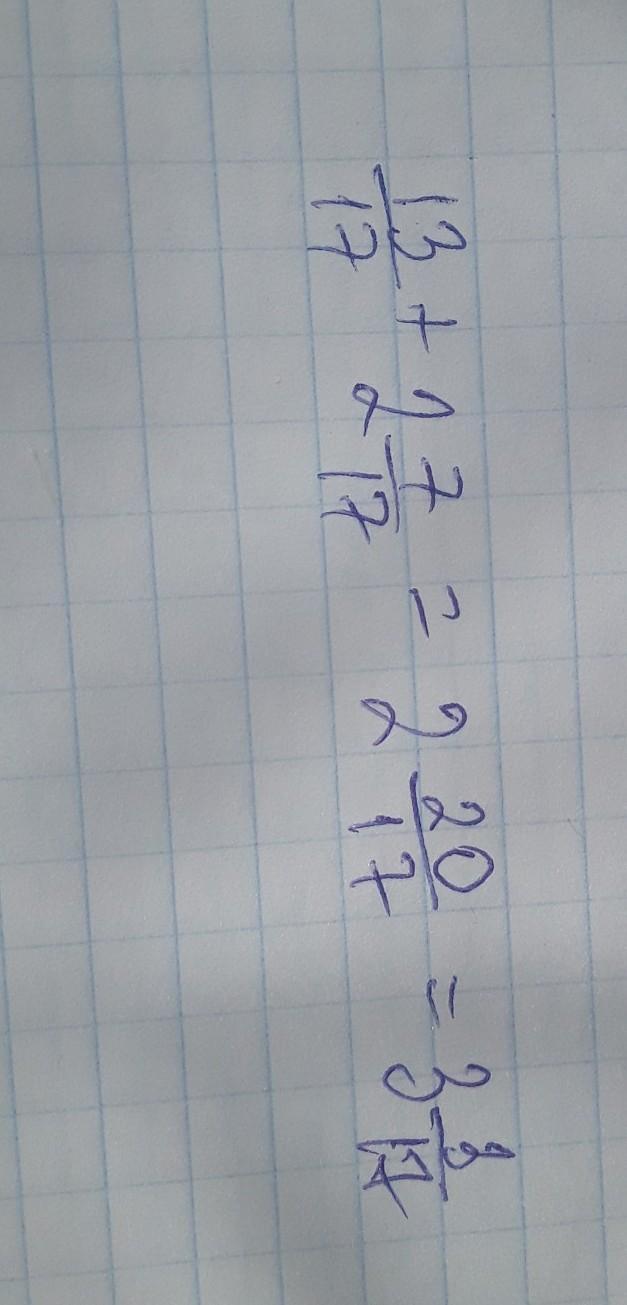 13/17 + 2 7/17 = 2 20/17 = 3 3/17